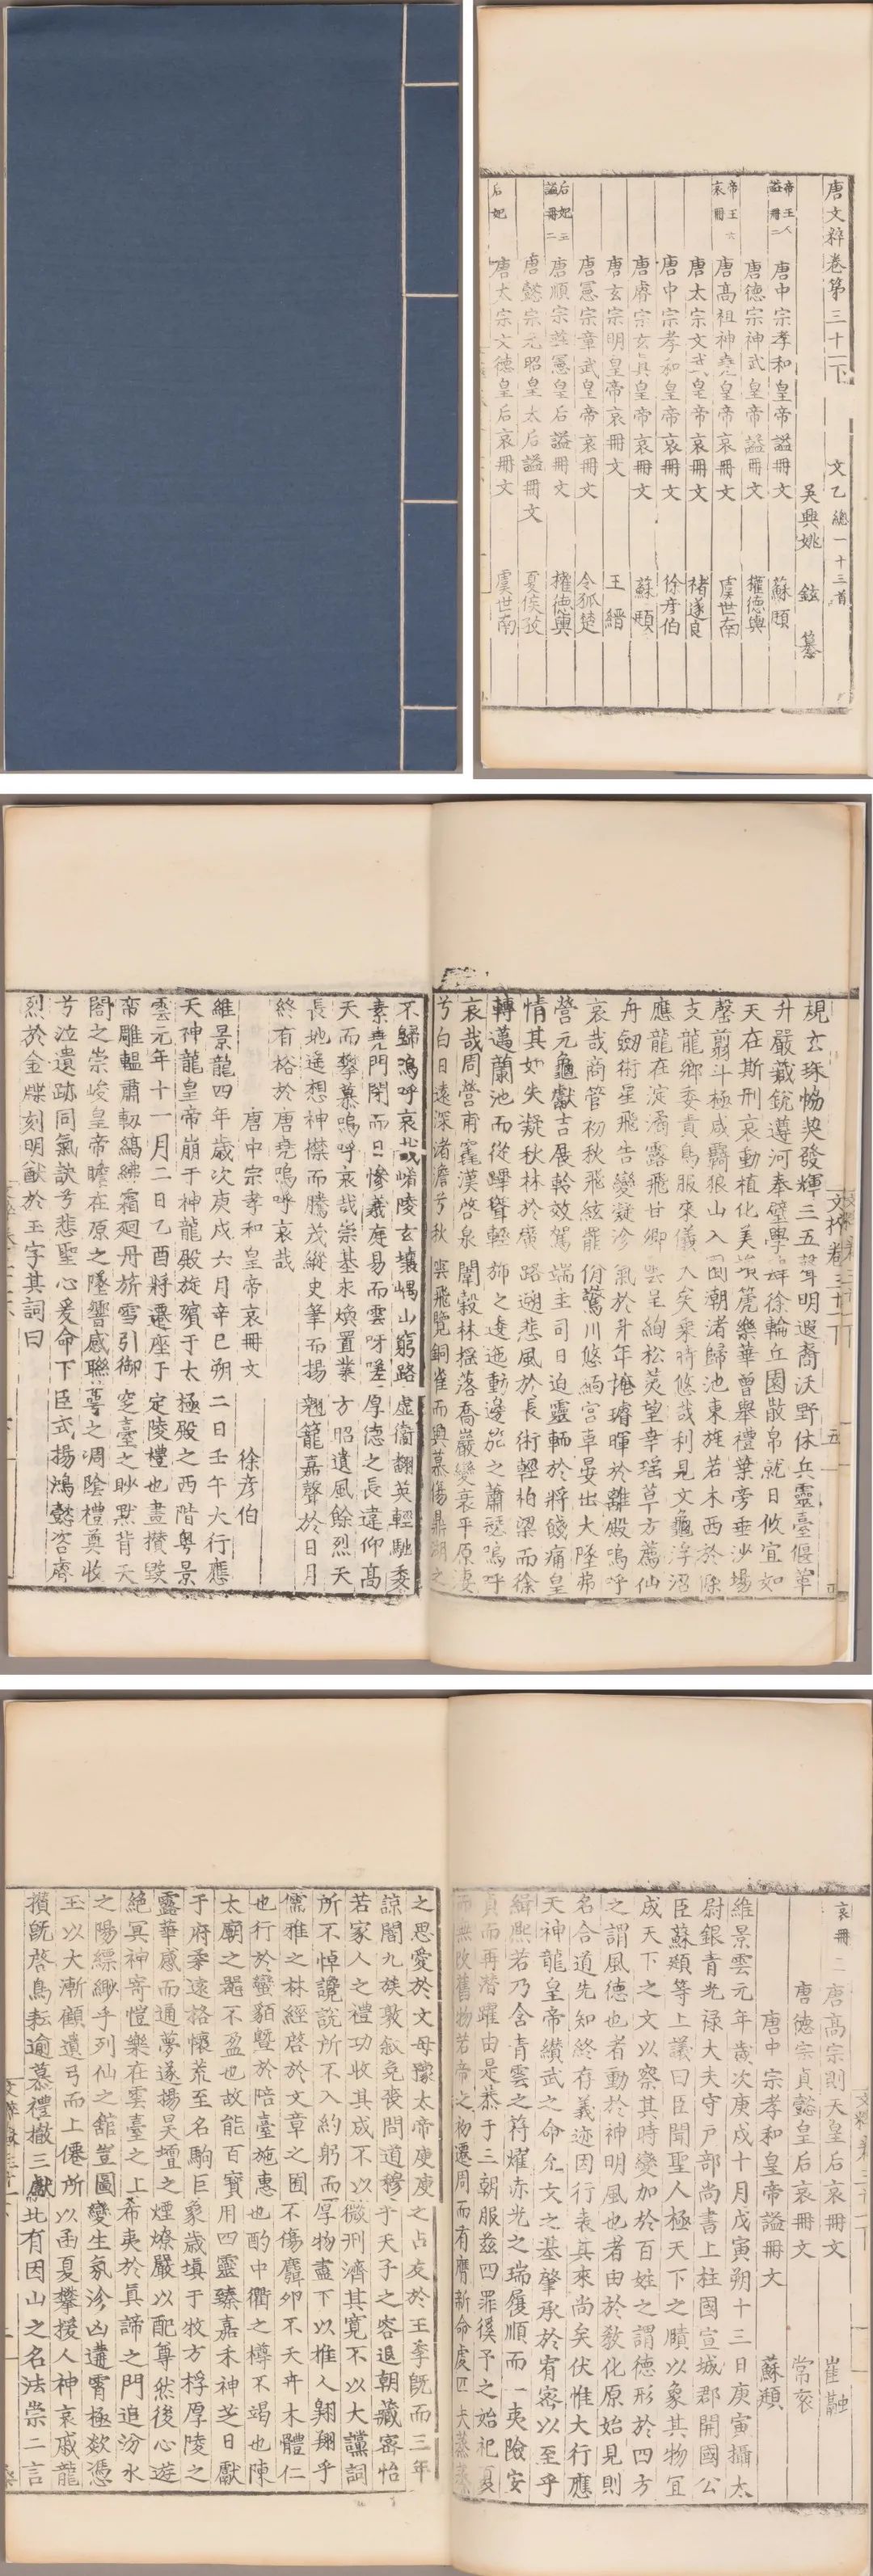 唐文粹卷第三十一下
文乙 總一十三首
吳興姚 鉉 纂
帝王人謚冊二 唐中宗孝和皇帝謚冊文 蘇頲
唐德宗神武皇帝謚冊文 權德輿
帝王哀冊六 唐高祖神堯皇帝哀冊文 虞世南
唐太宗文武皇帝哀冊文 褚遂良
唐中宗孝和皇帝哀冊文 徐彥伯
唐睿宗玄真皇帝哀冊文 蘇頲
唐玄宗明皇帝哀冊文 王縉
唐憲宗章武皇帝哀冊文 令狐楚
后妃五謚冊二 唐順宗莊憲皇后謚冊文 權德輿
唐懿宗元昭皇太后謚冊文 夏侯孜
后妃 唐太宗文德皇后哀冊文 虞世南
規玄珠恊契發輝三五聲明遐裔沃野休兵靈臺偃革
升嚴蕆銳遵河奉璧學辟徐輪丘園散帛就日攸宜如
天在斯刑哀動植化美 麓樂華曾舉禮葉旁垂沙場
罄翦斗極咸羈狼山入囿潮渚歸池東旌若木西 除
支龍鄉委賮鳥服來儀 矣乘時悠哉利見文龜浮沼
應龍在淀潏露飛甘卿雲呈絢松茨望幸瑤草方薦仙
舟劒術星飛告變凝沴氣於斗年掩璿暉於離殿嗚呼
哀哉商管初秋飛絃罷佾驚川悠緬宮車晏出大隧弗
營元龜獻吉展軨效駕端圭司日迫靈輀於將餞痛皇
情其如失凝秋林於廣路遡悲風於長術輕柏梁而徐
轉邁蘭池而從蹕聳輕 之逶迤動邊笳之蕭瑟嗚呼
哀哉周營甫竁漢啓泉闈轂林搖落喬巖變衰平原淒
兮白日遠深渚澹兮秋雲飛覽銅雀而興慕傷鼎湖之
不歸嗚呼哀哉 嵴陵玄壤嵎山窮路虛衞翻英輕馳委
素堯門閉而日慘羲庭易而雲呀嗟厚德之長違仰高
天而攀慕嗚呼哀哉崇基永煥置業方昭遺風餘烈天
長地遥想神襟而騰茂縱史筆而揚翹籠嘉聲於日月
終有格於唐堯嗚呼哀哉
唐中宗孝和皇帝哀冊文 徐彥伯
維景龍四年歲次庚戌六月辛巳朔二日壬午大行應
天神龍皇帝崩于神龍殿旋殯于太極殿之西階粤景
雲元年十一月二日乙酉將遷座于定陵禮也畫攢毀
帟雕轀肅軔縞紼霜廻丹旂雪引御窆臺之眇默背天
閤之崇峻皇帝瞻在原之墜響感聯萼之凋陰禮奠收
兮泣遺跡同氣訣兮悲聖心爰命下臣式揚鴻懿咨齊
烈於金牒刻明猷於玉字其詞曰
哀冊二 唐高宗則天皇后哀冊文 崔融
唐德宗貞懿皇后哀冊文 常袞
唐中宗孝和皇帝謚冊文 蘇頲
維景雲元年歲次庚戌十月戊寅朔十三日庚寅攝太
尉銀青光祿大夫守戶部尚書上柱國宣城郡開國公
臣蘇頲等上議曰臣聞聖人極天下之賾以象其物宜
成天下之文以察其時變加於百姓之謂德形於四方
之謂風德也者動於神明風也者由於教化原始見則
名合道先知終存義迹因行表其來尚矣伏惟大行應
天神龍皇帝纘武之命允文之基肇承於宥密以至乎
緝熙若乃含青雲之符燿赤光之瑞履順而一夷險安
貞而再潛躍由是恭于三朝服茲四罪徯予之始祀夏
而無改舊物若帝之初遷周而有膺新命
之思愛於文母豫太帝庾庾之占友於王季旣而三年
諒闇九族敦敘免喪問道穆于天子之容退朝蕆密怡
若家人之禮功收其成不以微刑濟其寬不以大讜詞
所不悼讒說所不入約躬而厚物盡下以推人翱翔乎
儒雅之林經啓於文章之囿不傷麛卵不夭卉木體仁
也行於蠻貊曁於陪臺施惠也酌中衢之樽不竭也陳
太廟之器不盈也故能百寶用四靈臻嘉禾神芝日獻
于府黍遠格懷荒至名駒巨象歲塡于牧方桴厚陵之
靈華感而通夢遂揚昊壇之煙燎嚴以配尊然後心遊
絕冥神寄愷樂在雲臺之上希夷於真諦之門追汾水
之陽縹緲乎列仙之舘豈圖變生氛沴凶遘霄極欻憑
玉以大漸顧遺弓而上僊所以函夏攀援人神哀戚龍
攢旣啓鳥耘逾慕禮撤三獻北有因山之名法崇二言